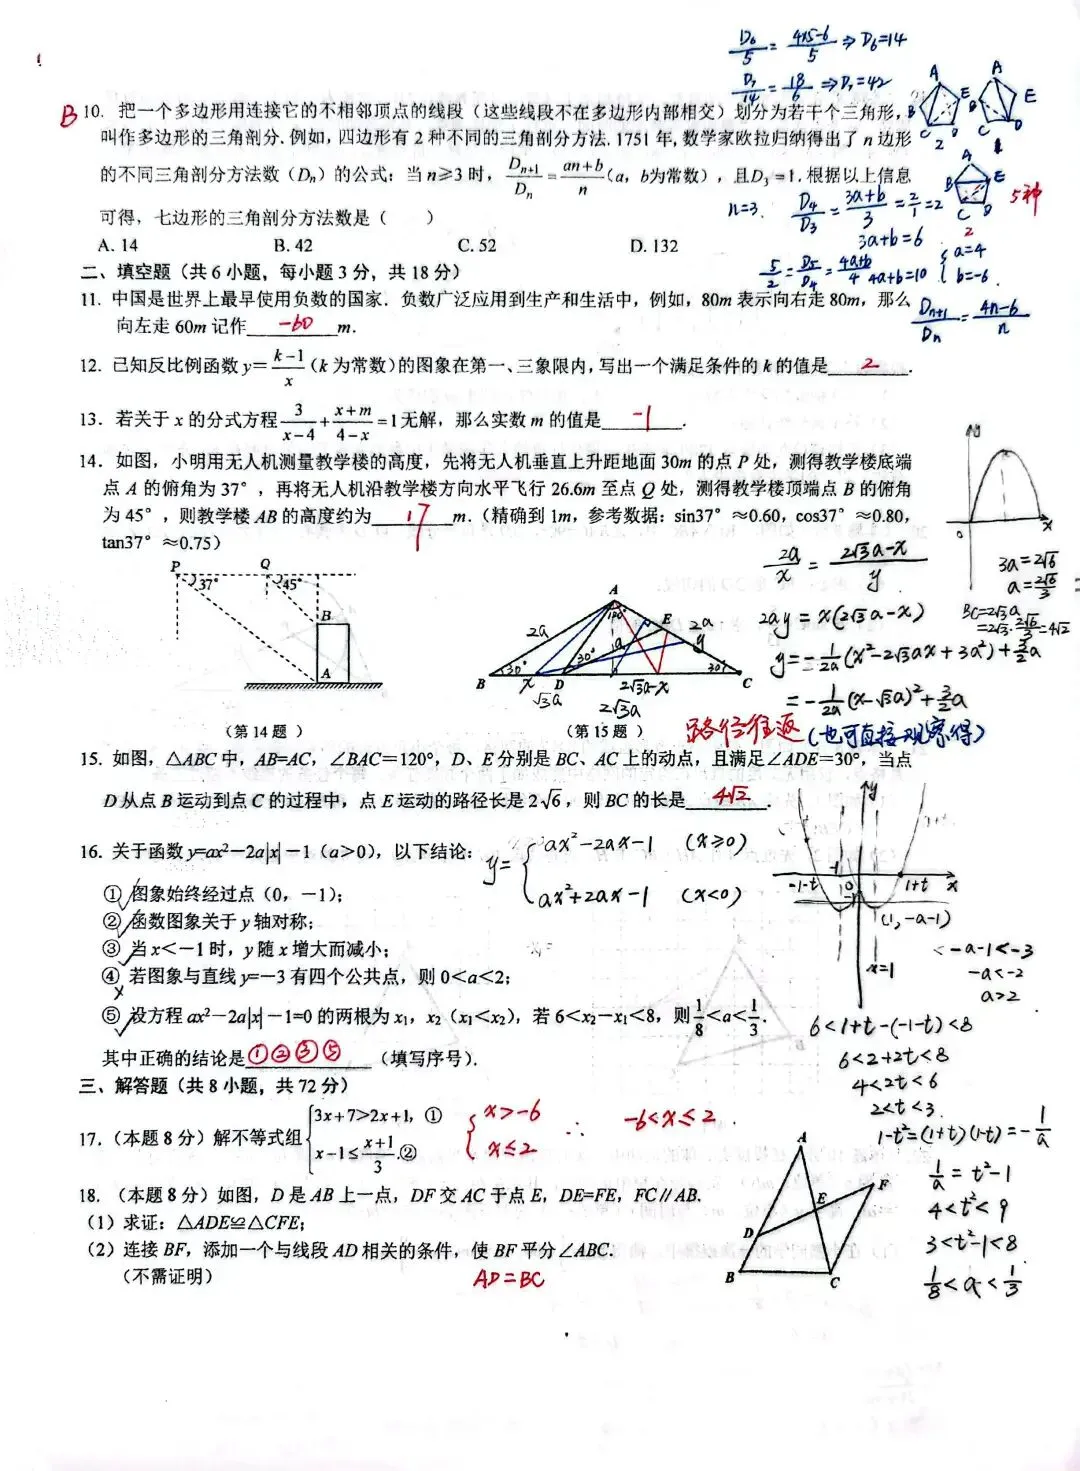 D₆/5 = (4×5-6)/5 ⇒ D₆=14
D₇/14 = 18/6 ⇒ D₇=42
B 10. 把一个多边形用连接它的不相邻顶点的线段（这些线段不在多边形内部相交）划分为若干个三角形，
叫作多边形的三角剖分. 例如，四边形有 2 种不同的三角剖分方法. 1751 年, 数学家欧拉归纳得出了 n 边形
的不同三角剖分方法数（Dₙ）的公式：当 n≥3 时，Dₙ₊₁/Dₙ = (an+b)/n (a，b为常数），且D₃=1. 根据以上信息
可得，七边形的三角剖分方法数是（　　）
A. 14　B. 42　C. 52　D. 132
A E B C D 2
A E B C D 1
A B E C D 2
5种
n=3. D₄/D₃ = (3a+b)/3 = 2/1 = 2
3a+b=6
5/2 = D₅/D₄ = (4a+b)/4 4a+b=10
{ a=4
b=-6.
Dₙ₊₁/Dₙ = (4n-6)/n
二、填空题（共 6 小题，每小题 3 分，共 18 分）
11. 中国是世界上最早使用负数的国家．负数广泛应用到生产和生活中，例如，80m 表示向右走 80m，那么
向左走 60m 记作 -60 m.
12. 已知反比例函数 y= (k-1)/x (k 为常数) 的图象在第一、三象限内, 写出一个满足条件的 k 的值是 2 .
13. 若关于 x 的分式方程 3/(x-4) + (x+m)/(4-x) =1 无解，那么实数 m 的值是 -1 .
14. 如图，小明用无人机测量教学楼的高度，先将无人机垂直上升距地面 30m 的点 P 处，测得教学楼底端
点 A 的俯角为 37°，再将无人机沿教学楼方向水平飞行 26.6m 至点 Q 处，测得教学楼顶端点 B 的俯角
为 45°，则教学楼 AB 的高度约为 17 m.（精确到 1m，参考数据：sin37°≈0.60，cos37°≈0.80，
tan37°≈0.75）
P Q 37° 45° B A
（第 14 题 ）
A E B D C 2a 2a y 30° 30° 30° x √3a 2√3a-x 2√3a
（第 15 题 ）
y x 0
3a=2√6
a=2√6/3
BC=2√3a
=2√3·2√6/3=4√2
2a/x = (2√3a-x)/y
2ay = x(2√3a-x)
y=-1/2a(x²-2√3ax+3a²)+3/2a
= -1/2a(x-√3a)²+3/2a
路径往返 (也可直接观察得)
15. 如图，△ABC 中，AB=AC，∠BAC=120°，D、E 分别是 BC、AC 上的动点，且满足∠ADE=30°，当点
D 从点 B 运动到点 C 的过程中，点 E 运动的路径长是 2√6，则 BC 的长是 4√2 .
16. 关于函数 y=ax²-2a|x|-1（a>0），以下结论：
y= { ax²-2ax-1 (x≥0)
ax²+2ax-1 (x<0)
① 图象始终经过点（0，-1）；
② 函数图象关于 y 轴对称；
③ 当 x<-1 时，y 随 x 增大而减小；
④ 若图象与直线 y=-3 有四个公共点，则 0<a<2；
⑤ 设方程 ax²-2a|x|-1=0 的两根为 x₁，x₂（x₁<x₂），若 6<x₂-x₁<8，则 1/8<a<1/3.
其中正确的结论是 ①②③⑤ （填写序号）.
y -1-t 0 1+t x -1 (1,-a-1) x=1
-a-1<-3
-a<-2
a>2
6<1+t-(-1-t)<8
6<2+2t<8
4<2t<6
2<t<3.
1-t²=(1+t)(1-t)=-1/a
1/a = t²-1
4<t²<9
3<t²-1<8
1/8<a<1/3
三、解答题（共 8 小题，共 72 分）
17.（本题 8 分）解不等式组 { 3x+7>2x+1，①
x-1≤(x+1)/3.②
{ x>-6
x≤2 ∴ -6<x≤2.
18. （本题 8 分）如图，D 是 AB 上一点，DF 交 AC 于点 E，DE=FE，FC∥AB.
（1）求证：△ADE≌△CFE；
（2）连接 BF，添加一个与线段 AD 相关的条件，使 BF 平分∠ABC.
（不需证明） AD=BC
A F E D B C